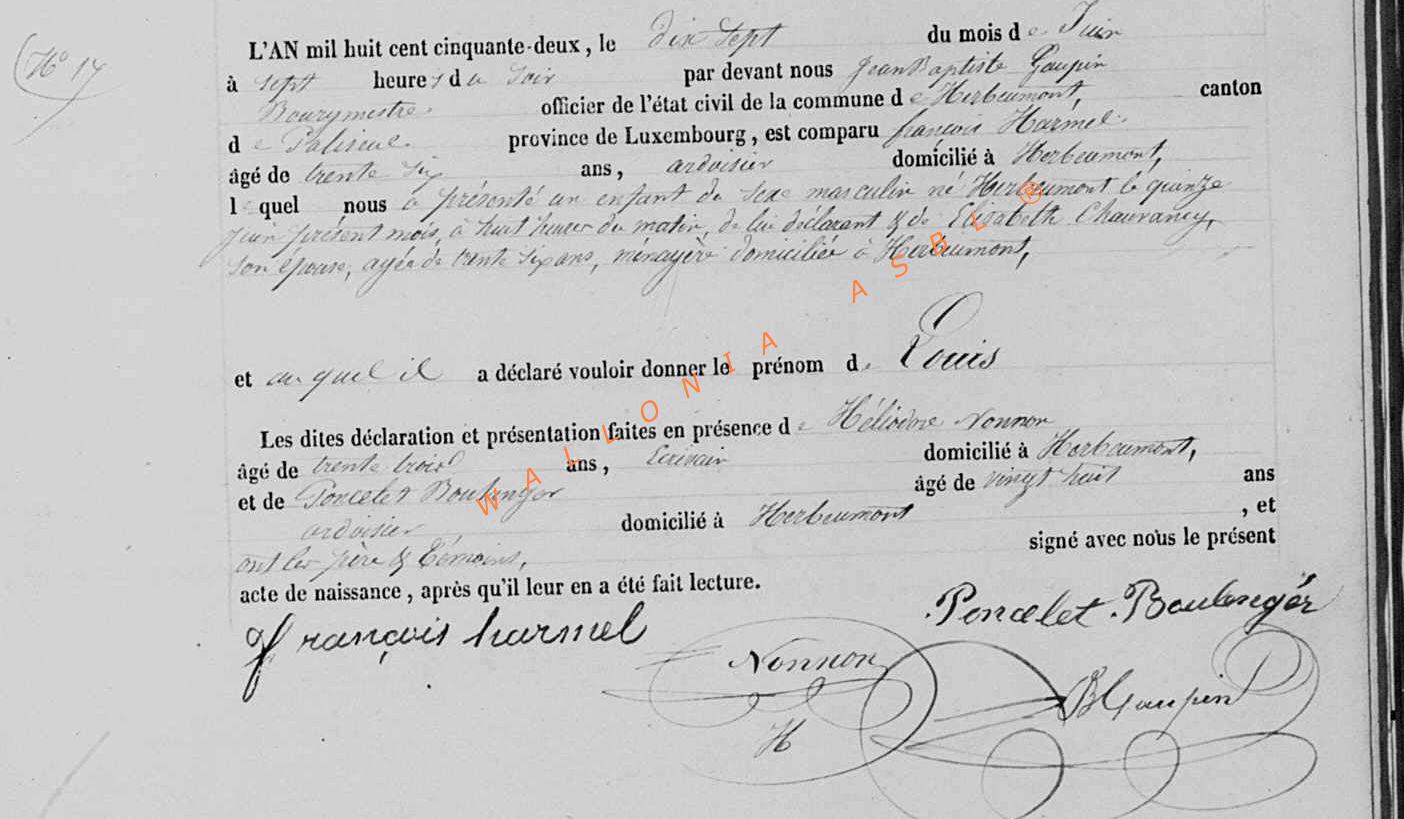 N° 14
L'AN mil huit cent cinquante-deux, le dix sept du mois de Juin
à sept heures du soir par devant nous Jean Baptiste Gaupin
Bourgmestre officier de l'état civil de la commune de Herbeumont, canton
de Paliseul province de Luxembourg, est comparu françois Harmel
âgé de trente six ans, ardoisier domicilié à Herbeumont,
lequel nous a présenté un enfant du sexe masculin né Herbeumont le quinze
juin présent mois, à huit heures du matin, de lui déclarant & de Elisabeth Chauvancy,
son épouse, agée de trente six ans, ménagère domiciliée à Herbeumont,
et au quel il a déclaré vouloir donner le prénom de Louis
Les dites déclaration et présentation faites en présence de Héliodore Nonnon
âgé de trente trois ans, Ecrivain domicilié à Herbeumont,
et de Poncelet Boulenger âgé de vingt huit ans
ardoisier domicilié à Herbeumont, et
ont les père & témoins, signé avec nous le présent
acte de naissance, après qu'il leur en a été fait lecture.
françois harmel
Poncelet Boulengér
Nonnon
H
JB Gaupin
WALLONIA ASBL ®